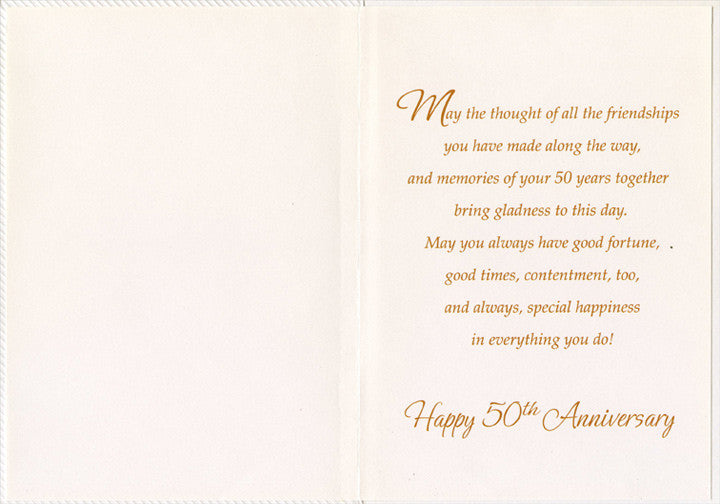 May the thought of all the friendships
you have made along the way,
and memories of your 50 years together
bring gladness to this day.
May you always have good fortune,
good times, contentment, too,
and always, special happiness
in everything you do!
Happy 50th Anniversary